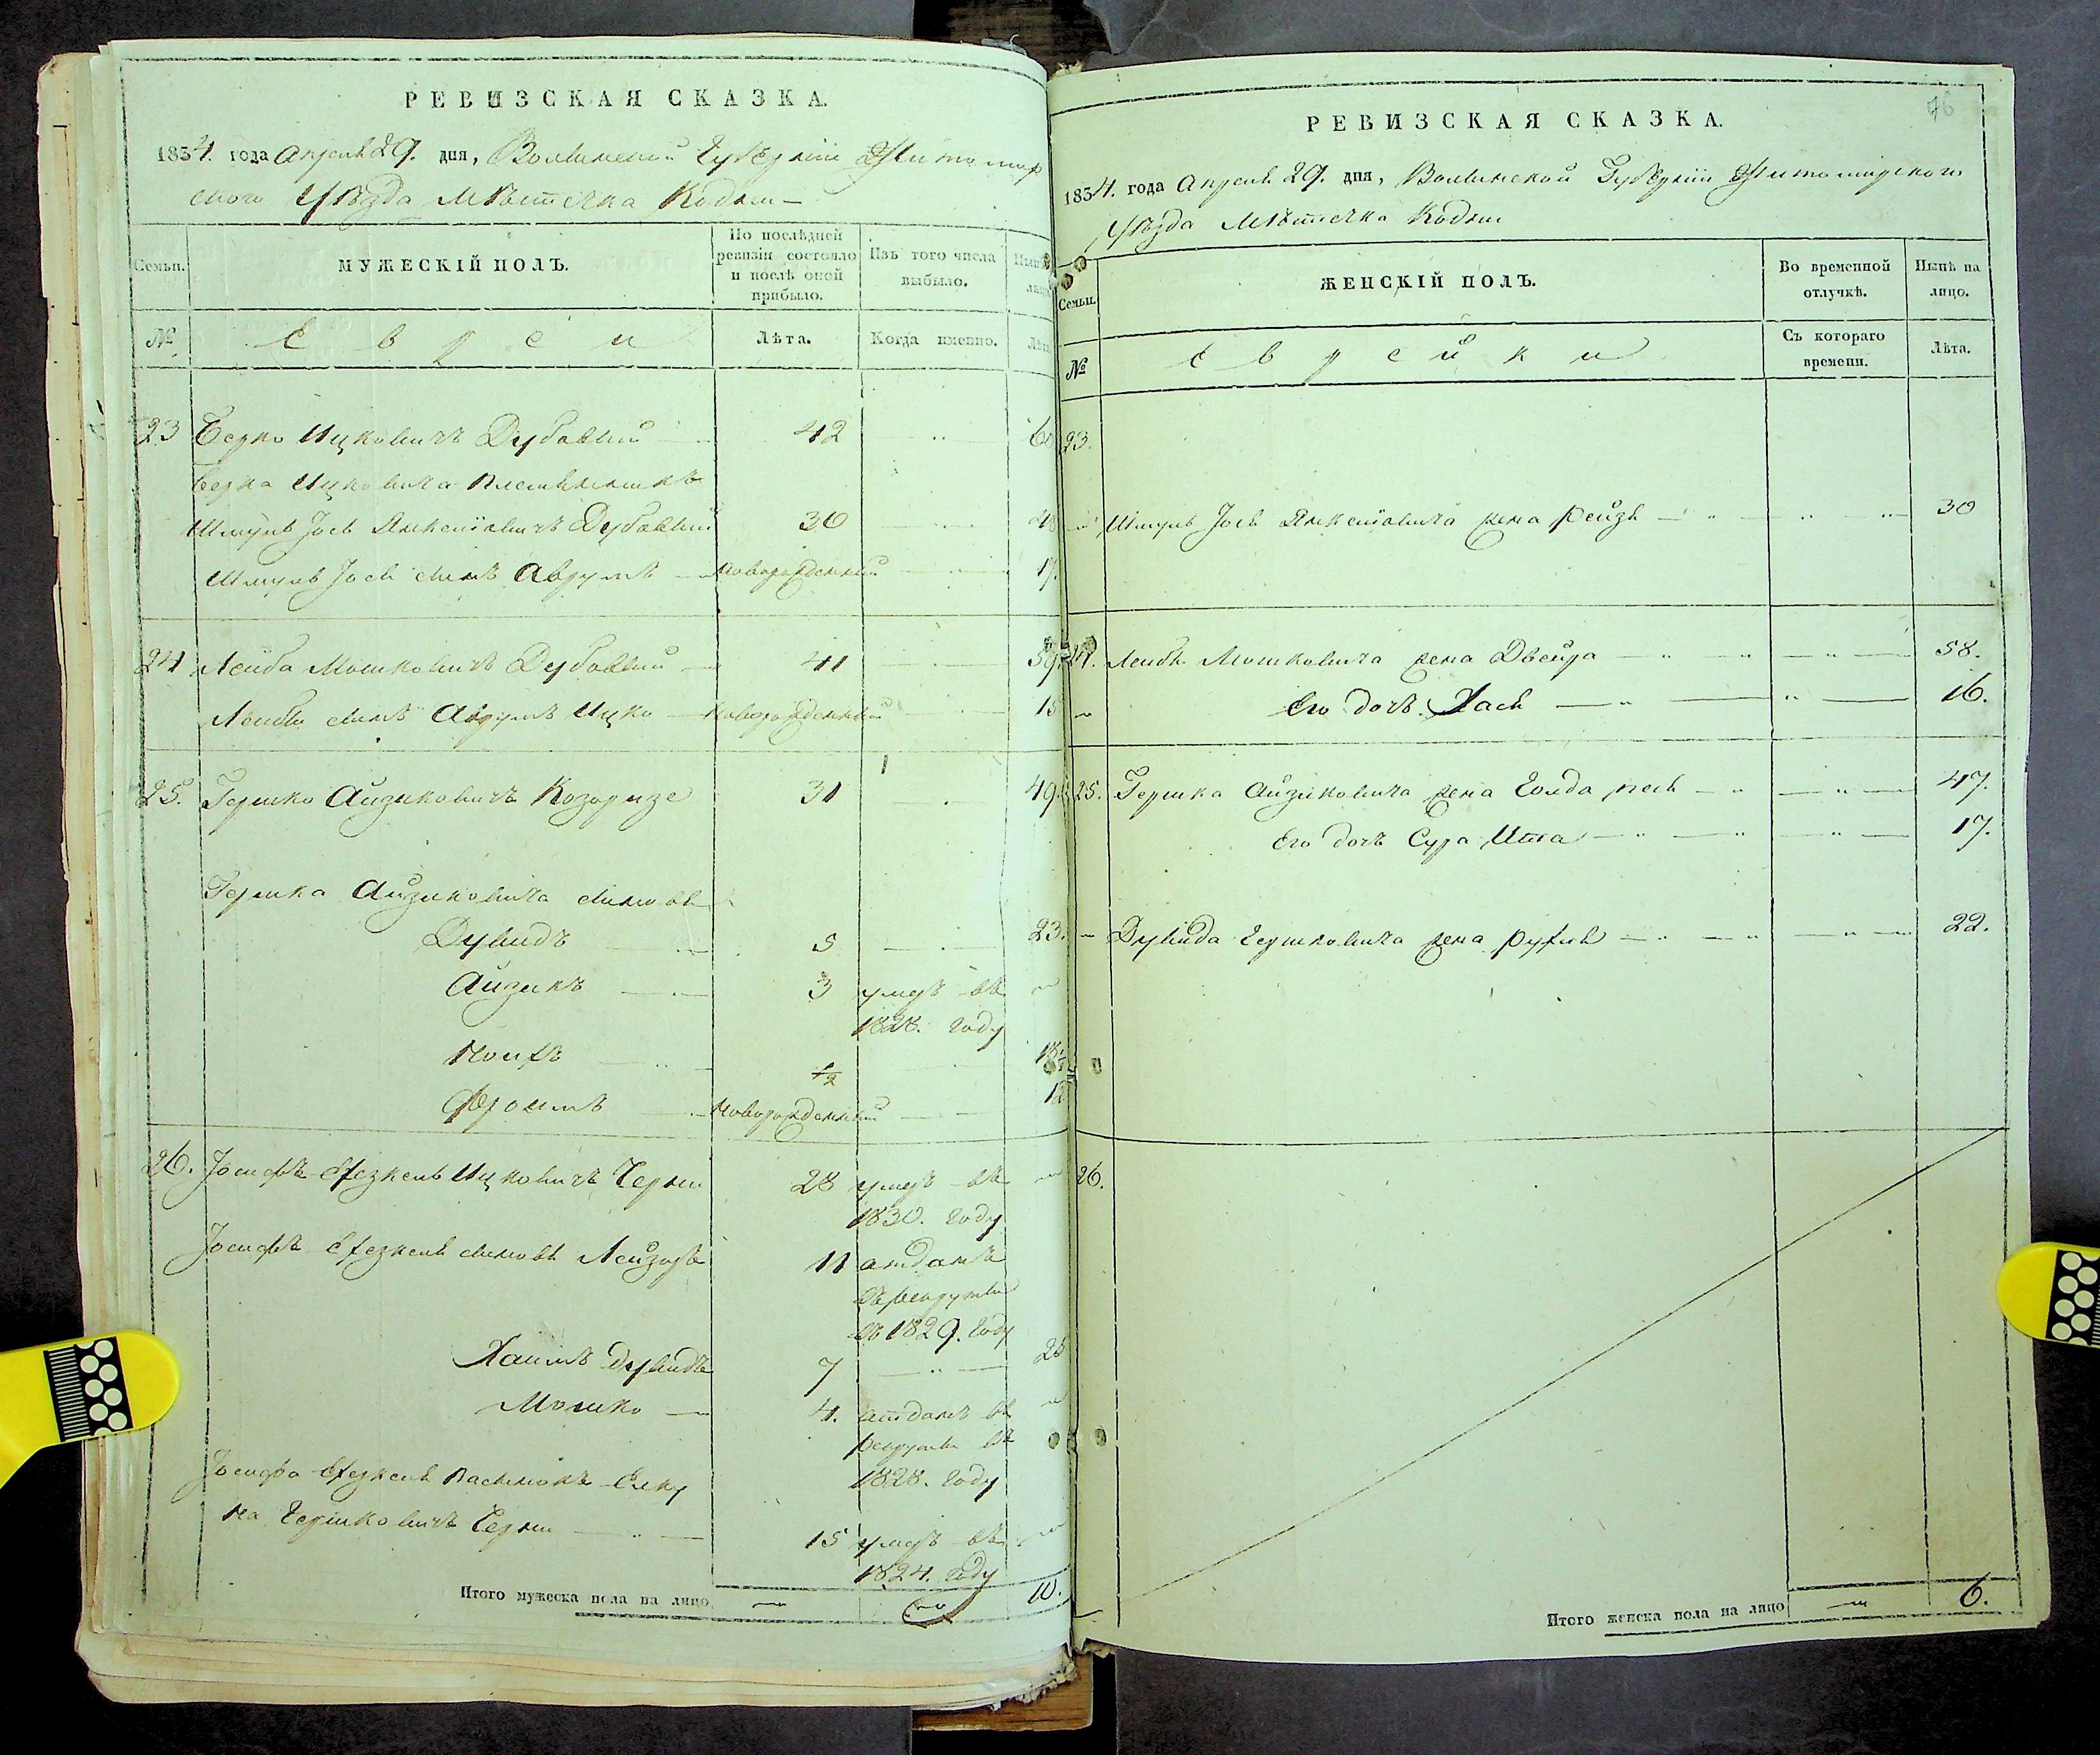 РЕВИЗСКАЯ СКАЗКА.
1834. года Апреля 29. дня, Волынской Губерніи Житомир
скаго Уѣзда Мѣстечка Кодни
Семьи.
МУЖЕСКІЙ ПОЛЪ.
По послѣдней ревизіи состояло и послѣ оной прибыло.
Изъ того числа выбыло.
№
Евреи
Лѣта.
Когда именно.
23 Берко Ицковичъ Дубовый 42 60
Берка Ицковича племянникъ
Шмуль Іось Янкеліовичъ Дубовый 30 48
Шмуль Іося сынъ Аврумъ новорожденный 17.
24 Лейба Мошковичъ Дубовый 41 59
Лейбы сынъ Аврумъ Ицко новорожденный 15
25. Гершко Айзиковичъ 31 49.
Гершка Айзиковича сыновья
Дувидъ 5 23.
Айзикъ 3 умеръ въ
1828. году
½ 18½
Фроимъ новорожденный 12
26. Іосифъ Хезкель Ицковичъ Черны 28 умеръ въ
1830. году
Іосифъ Хезкеля сыновья Лейзоръ 11 отданъ
въ рекруты
въ 1829. году
Хаимъ Дувидъ 7 25
Мошко 4. отданъ въ
рекруты въ
1828. году
Іосифа Хезкеля
на Гершковичъ Черны 15 умеръ въ
1824. году
Итого мужеска пола на лицо 10.
76
РЕВИЗСКАЯ СКАЗКА.
1834. года Апреля 29. дня, Волынской Губерніи Житомирскаго
Уѣзда Мѣстечка Кодни
Семьи.
ЖЕНСКІЙ ПОЛЪ.
Во временной отлучкѣ.
Нынѣ на лицо.
№
Еврейки
Съ котораго времени.
Лѣта.
23.
Шмуль Іось Янкеліовича жена Рейзя 30
24. Лейбы Мошковича жена Двейра 58.
Его дочь Хася 16.
25. Гершка Айзиковича жена Голда Песя 47.
Его дочь Сура Ита 17.
Дувида Гершковича жена Рухля 22.
26.
Итого женска пола на лицо 6.